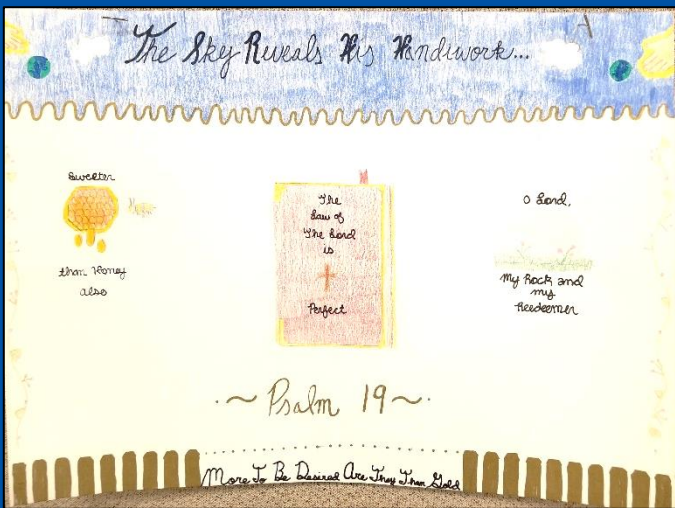 The Sky Reveals His Handiwork...
Sweeter
than Honey
also
The
Law of
The Lord
is
Perfect
O Lord,
My Rock and
my
Redeemer
~ Psalm 19 ~
More To Be Desired Are They Than Gold